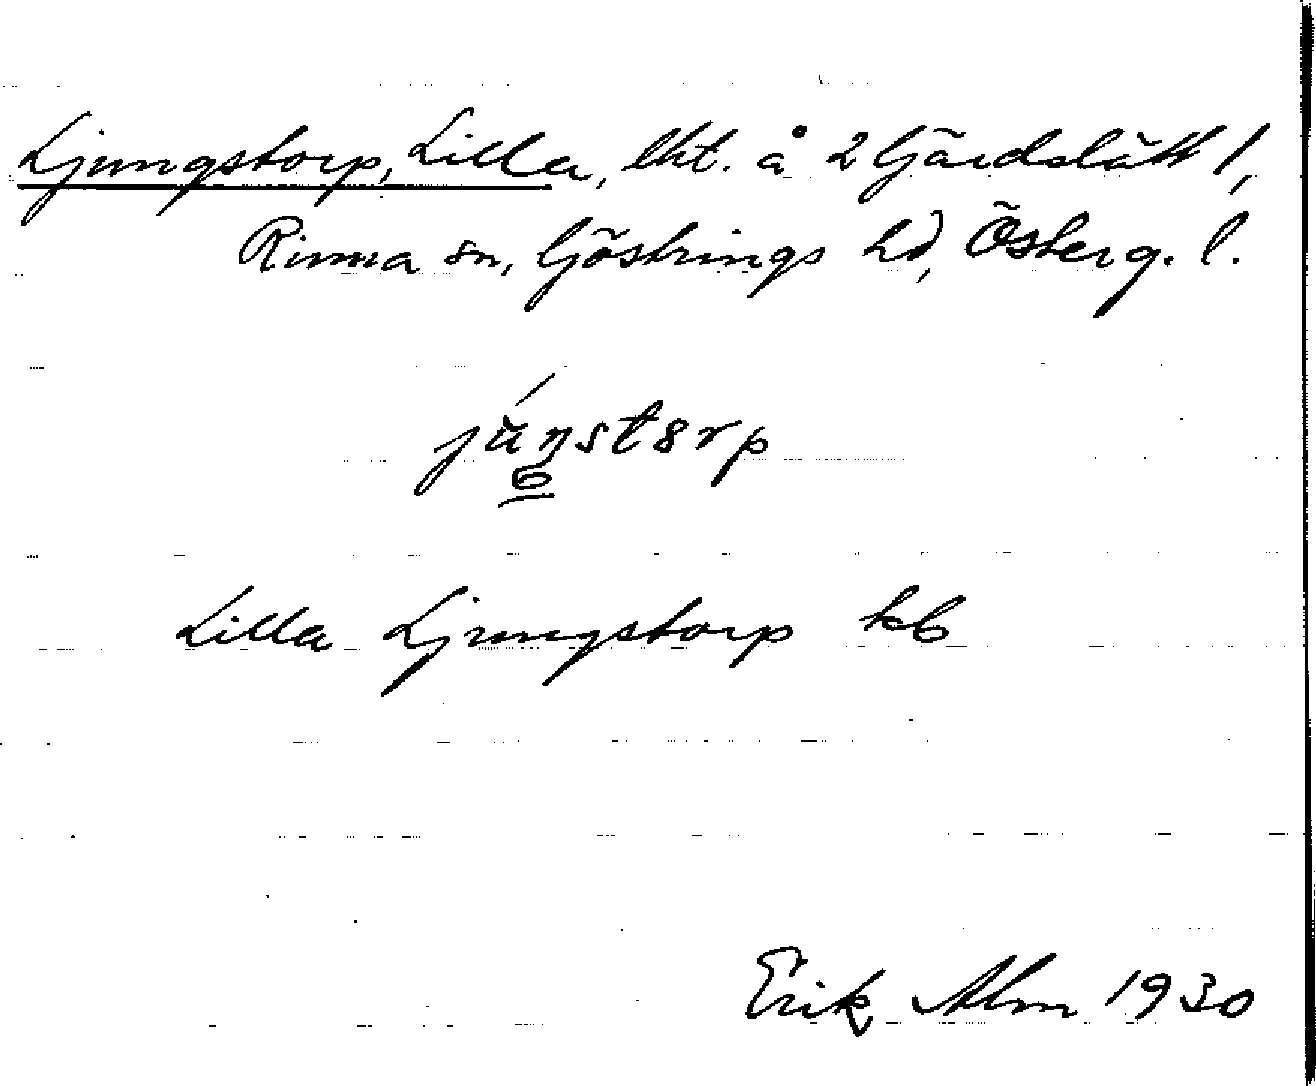 Ljungstorp, Lilla, lht. å 2 Gärdslätt 1,
Rinna sn, Göstrings hd, Österg. l.
júŋstorp
Lilla Ljungstorp kb
Erik Alm 1930